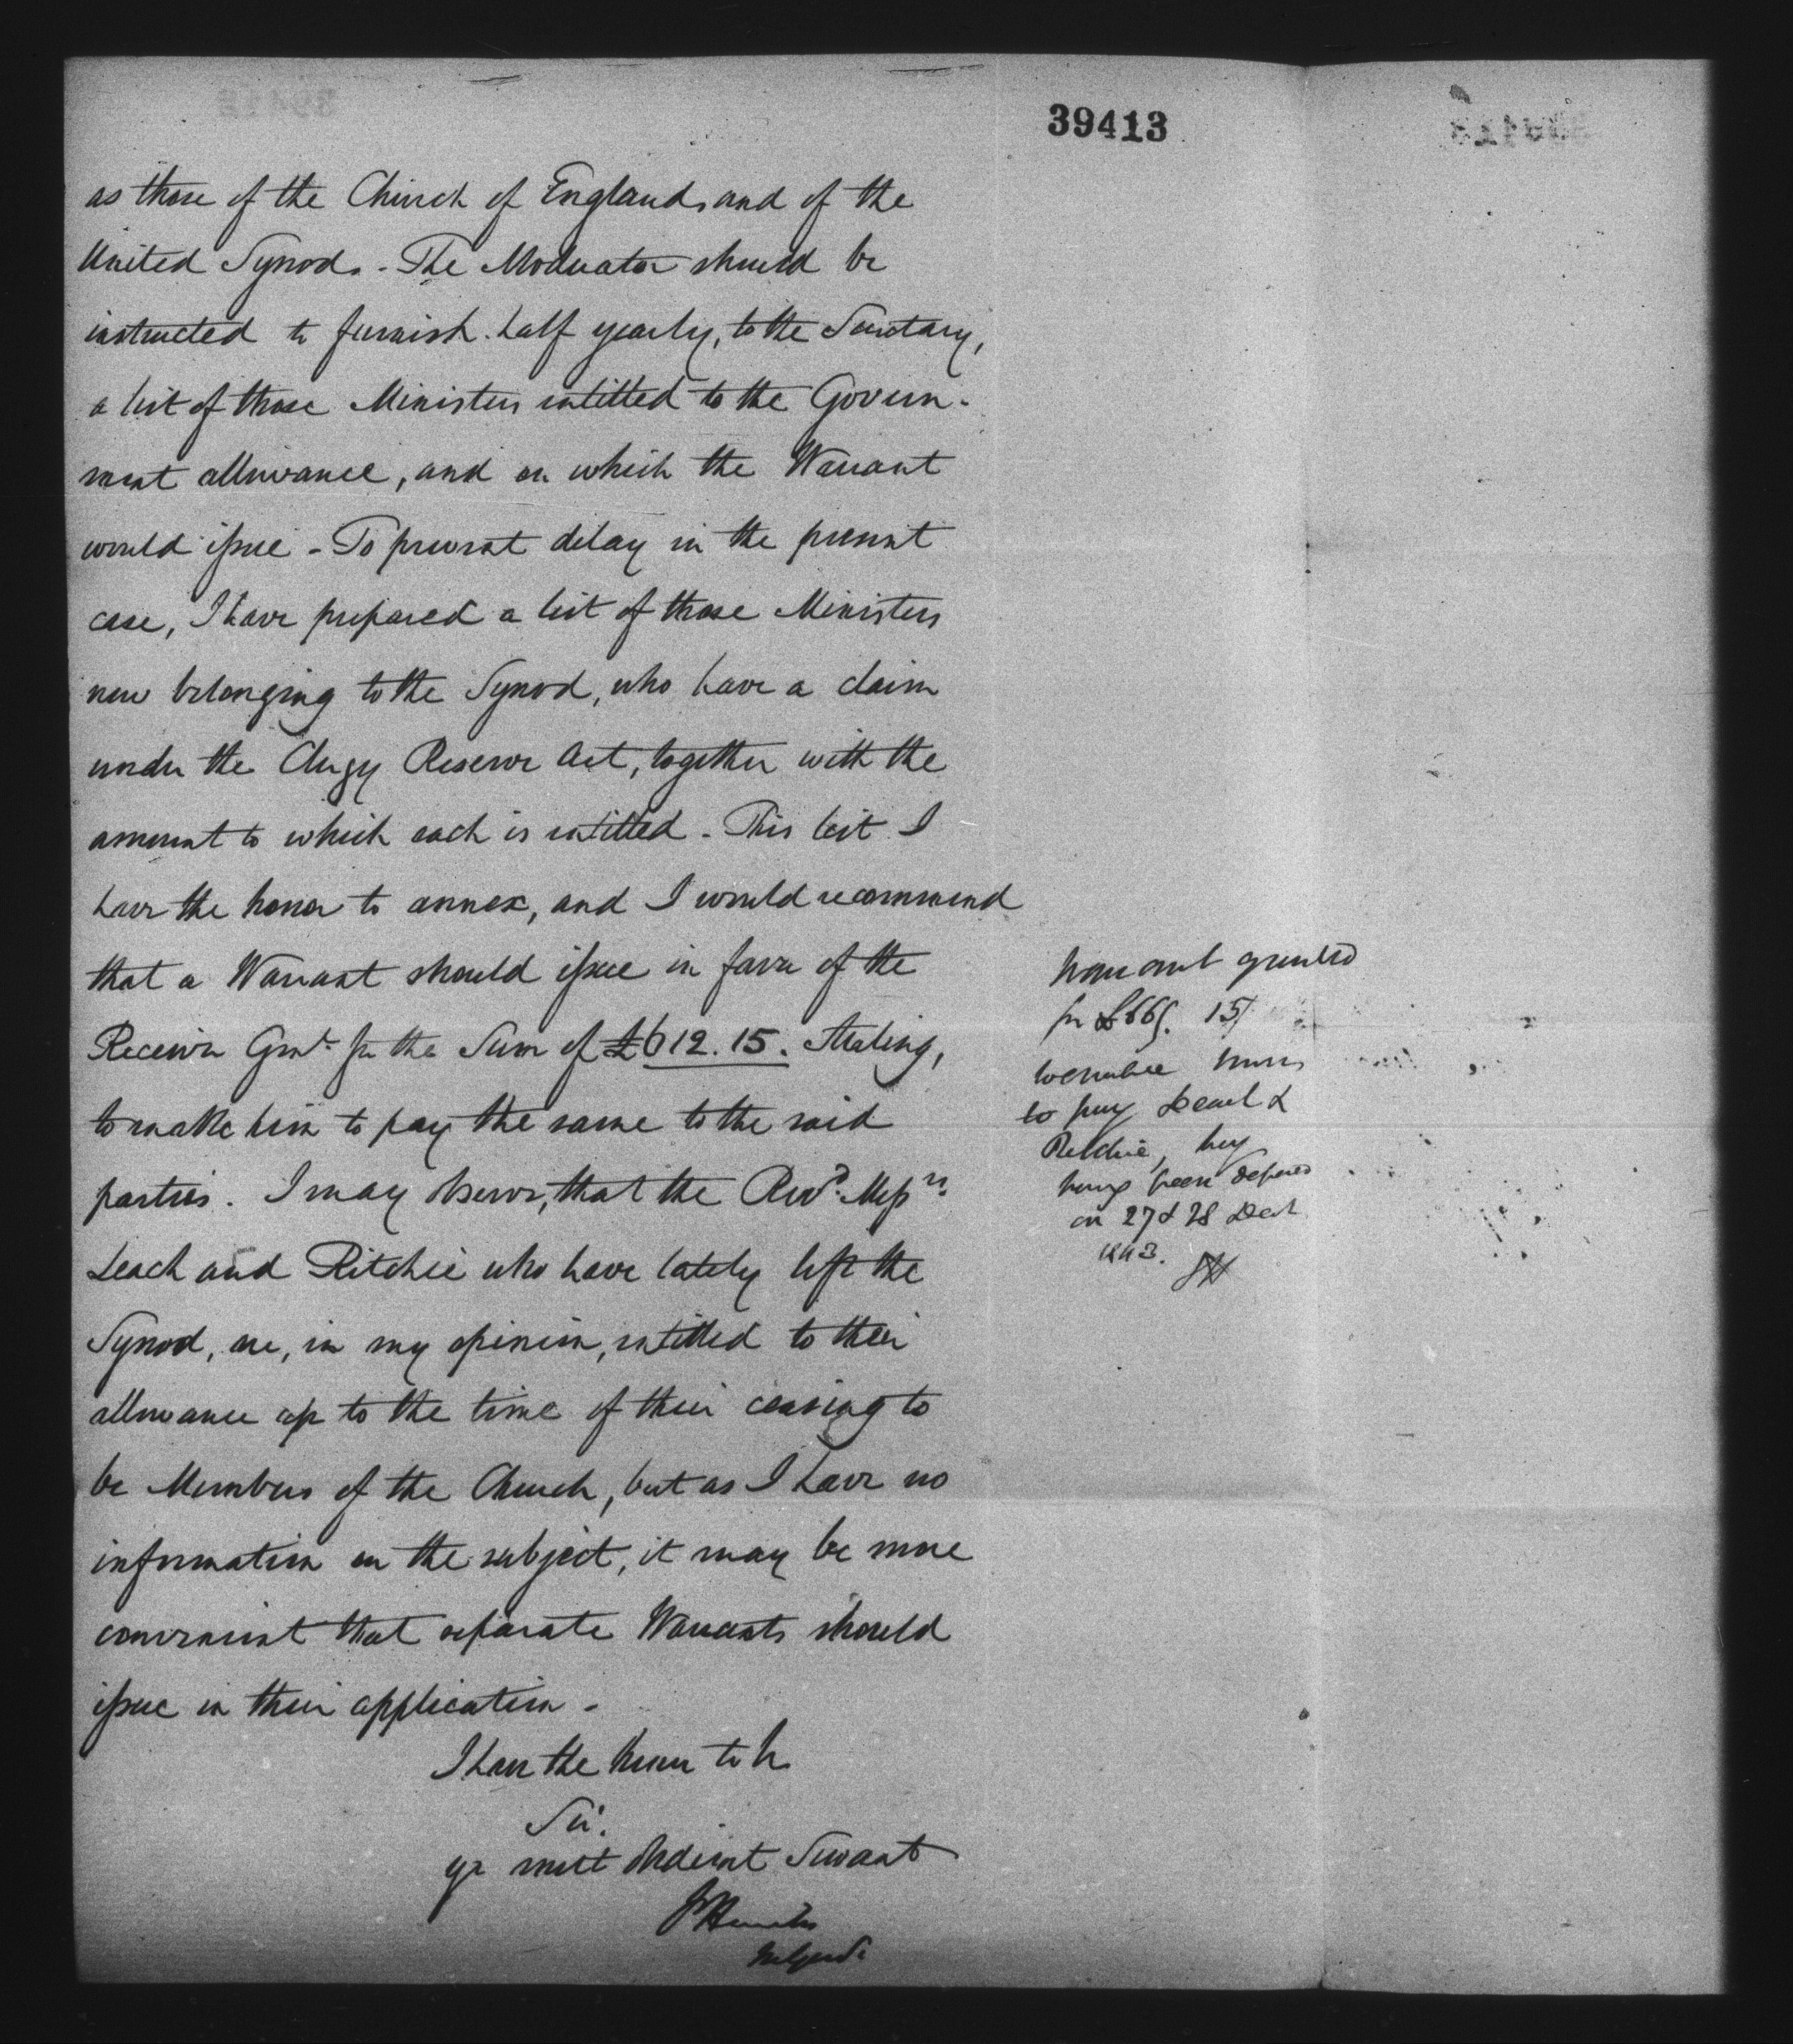 39413
as those of the Church of England, and of the
United Synod. - The Moderator should be
instructed to furnish half yearly, to the Secretary,
a list of those Ministers intitled to the Govern-
ment allowance, and on which the Warrant
would issue - To prevent delay in the present
case, I have prepared a list of those Ministers
now belonging to the Synod, who have a claim
under the Clergy Reserve Act, together with the
amount to which each is intitled - This list I
have the honor to annex, and I would recommend
that a Warrant should issue in favor of the
Receiver Genl. for the Sum of £612.15. Sterling,
to enable him to pay the same to the said
parties. I may observe, that the Revd. Messrs.
Leach and Ritchie who have lately left the
Synod, are, in my opinion, intitled to their
allowance up to the time of their ceasing to
be Members of the Church, but as I have no
information on the subject, it may be more
convenient that separate Warrants should
issue in their application -
I have the honor to be
Sir.
yr most obedient Servant
Warrant granted
for £665. 15/
to enable
to pay Leach &
Ritchie, they
having been deposed
on 27 & 28 Decr
1843.